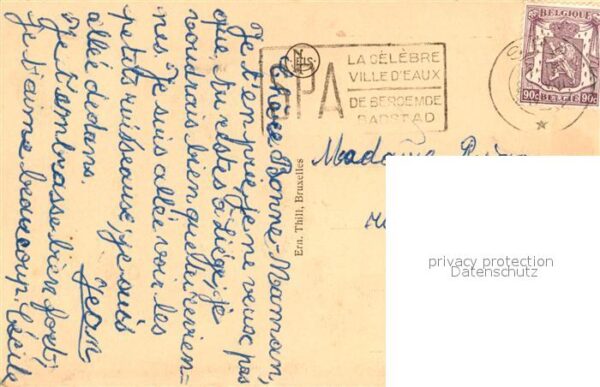 Chère Bonne-Maman,
Je t'en prie, je ne veux pas
que tu restes à Liège, je
voudrais bien que tu revien-
nes. Je suis allée voir les
petits ruisseaux, je suis
allée dedans. Jean
Je t'embrasse bien fort,
je t'aime beaucoup. Cécile
NELS
SPA
LA CÉLÈBRE
VILLE D'EAUX
DE BEROEMDE
BADSTAD
BELGIQUE
90c BELGIE 90c
Madame
Ern. Thill, Bruxelles
privacy protection
Datenschutz